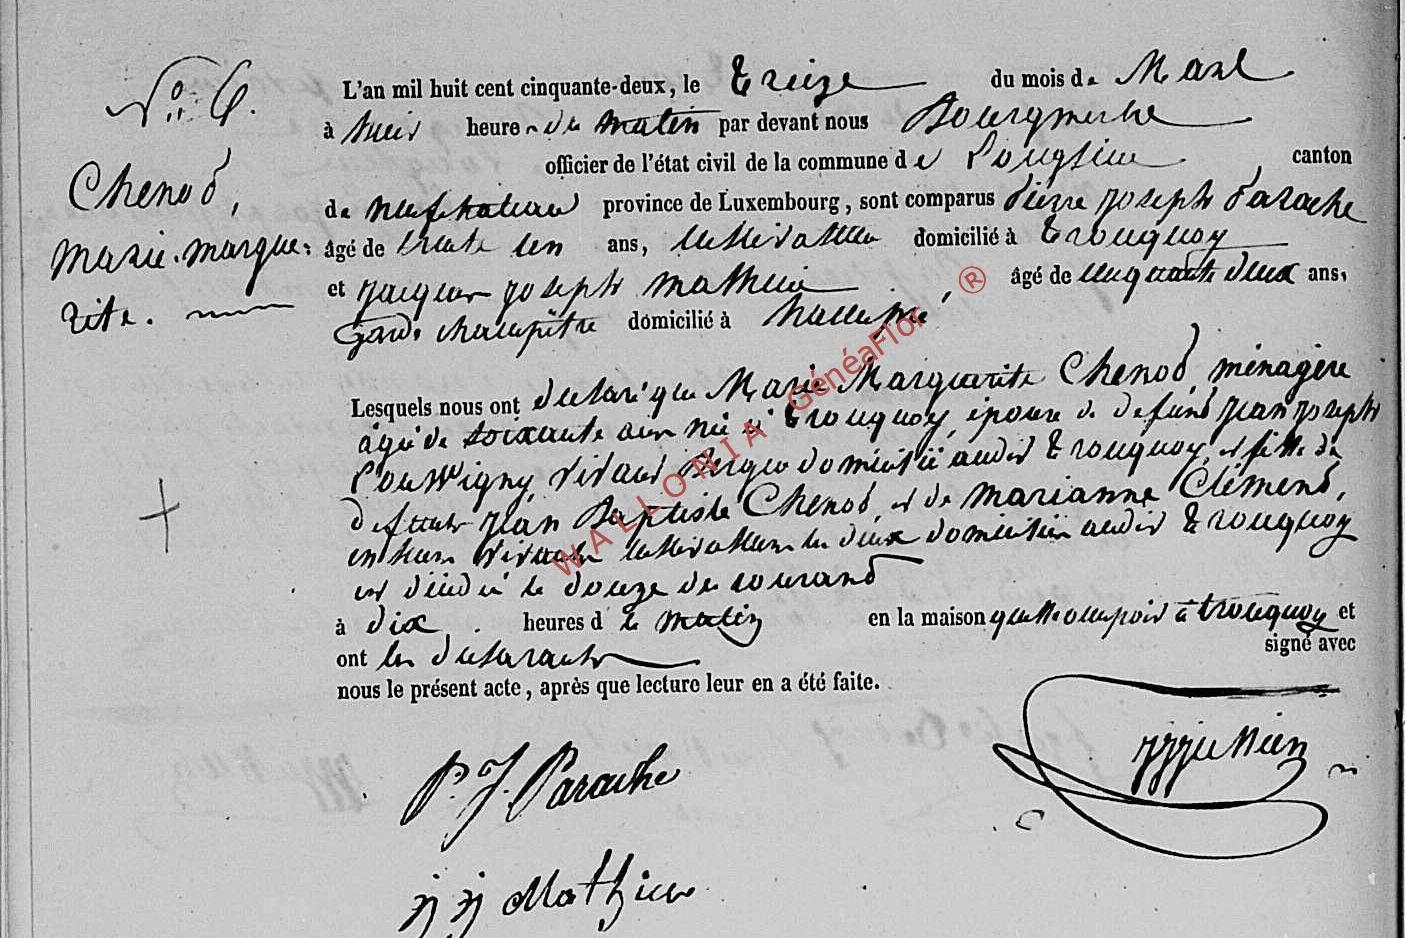 N.o 6.
Chenot,
Marie-Margue-
rite.
L'an mil huit cent cinquante-deux, le treize du mois de Mars
à huit heures du matin par devant nous Bourgmestre
officier de l'état civil de la commune de Longlier canton
de neufchateau province de Luxembourg, sont comparus Pierre Joseph Parache
âgé de trente un ans, cultivateur domicilié à Tronquoy
et Jacques Joseph Mathieu âgé de cinquante deux ans,
Garde champêtre domicilié à
Lesquels nous ont déclaré que Marie Marguerite Chenot, ménagère
âgée de soixante ans née à Tronquoy, épouse de défunt Jean Joseph
vivant Berger domicilié audit Tronquoy, et fille de
défunts Jean Baptiste Chenot, et de Marianne Clément,
en leur vivant cultivateurs les deux domiciliés audit Tronquoy
est décédée le douze du courant
à dix heures du matin en la maison qu'elle occupoit à Tronquoy et
ont les déclarants signé avec
nous le présent acte, après que lecture leur en a été faite.
P. J. Parache
JJ Mathieu
WALLONIA GénéaFlor ®